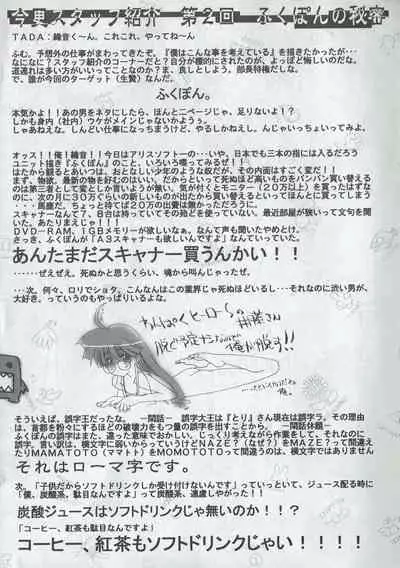 今更スタッフ紹介　第２回　ふくぽんの秘密
ＴＡＤＡ：綾音く～ん。これこれ、やってね～ん
ふむ。予想外の仕事がまわってきたぞ。『僕はこんな事を考えている』を描きたかったが…
なになに？スタッフ紹介のコーナーだと？自分が標的にされたのが、よっぽど悔しいのだな。
道連れは多い方がいいってことなのか？ま、良しとしよう。部長特権だしな。
で、誰が今回のターゲット（生贄）なんだ。
ふくぽん。
本気かよ！！あの男をネタにしたら、ほんと二ページじゃ、足りないよ！？
しかも身内（社内）ウケがメインじゃないかようぅ。
しゃあねえな。しんどい仕事になっちまうけど、やるしかねえし。んじゃいっちょいってみよ。
オッス！！俺！綾音！！今日はアリスソフト一の…いや、日本でも三本の指には入るだろう
ユニット描き『ふくぽん』のこと、いろいろ喋ってみるぜ！！
はたから観るとあいつは、おとなしい少年のような奴だが、その内面はすごく変だ！！
まず、物欲。最新の物を好むのはいい。だからといって死ぬほど高いものをバンバン買い替えるの
は第三者として変としか言いようが無い。気が付くとモニター（２０万以上）を買ったはずな
のに、次の月に３０万ぐらいの新しいものが出たから買い替えるといってほんとに買ってしまう
…馬鹿だ。ちょっと待てば２０の出費は無かったろうに。
スキャナーなんて７、８台は持っていてその殆どを使っていない。最近部屋が狭いって文句を聞
いた。あたりまえじゃ！！
ＤＶＤ－ＲＡＭ、１ＧＢメモリーが欲しいなぁ。なんて声も聞いたためやめとけ。
さっき、ふくぽんが「Ａ３スキャナーも欲しいんですよ」なんていっていた。
あんたまだスキャナー買うんかい！！
……ぜえぜえ。死ぬかと思うくらい、魂から叫んじゃったぜ。
…次。何々、ロリでショタ。こんなんはこの業界じゃ死ぬほどいるし…それなのに渋い男が、
大好き。っていうのもやっぱりいるよな。
わんぱくヒーローの
そういえば、誤字王だったな。　－閑話－　誤字大王は『とり』さん現在は誤字ラ。その理由
は、首都を粉々にするほどの破壊力をもつ量の誤字を出すことから。　－閑話休題－
ふくぽんの誤字はまた、違った意味でおかしい。じっくり考えながら作業をして、それなのに
誤字。言い訳は、横文字に弱いからっていうけどＮＡＺＥ？（なぜ？）をＭＡＺＥ？って間違え
たりＭＡＭＡＴＯＴＯ（ママトト）をＭＯＭＯＴＯＴＯって間違うのは、横文字ではありません
それはローマ字です。
次。「子供だからソフトドリンクしか受け付けないんです」っていっといて、ジュース配る時に
「僕、炭酸系、駄目なんですよ」って炭酸系、遠慮しやがった！！
炭酸ジュースはソフトドリンクじゃ無いのか！！？
「コーヒー、紅茶も駄目なんですよ」
コーヒー、紅茶もソフトドリンクじゃい！！！！